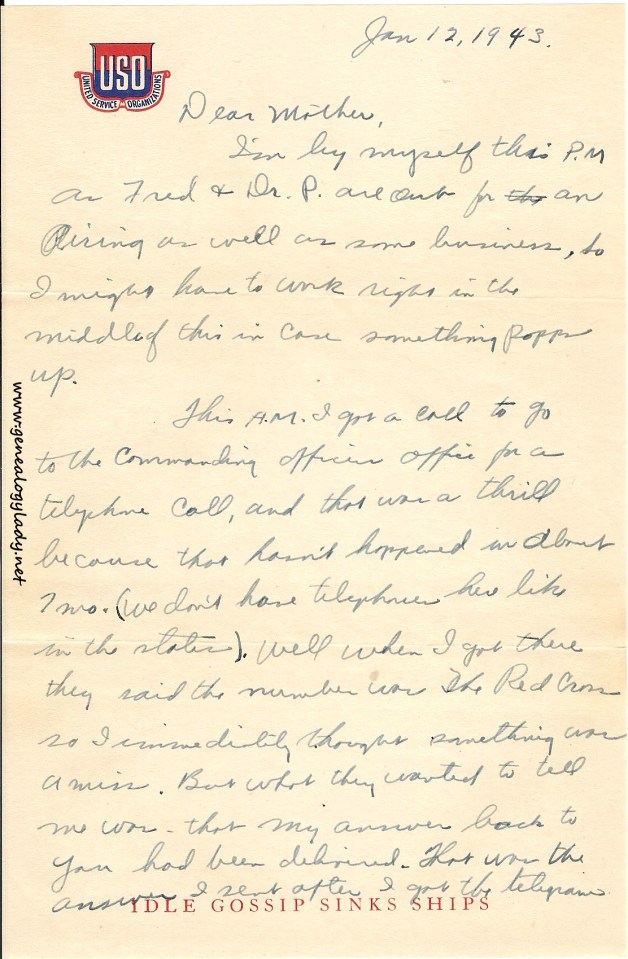 Jan 12, 1943.
USO
UNITED SERVICE ORGANIZATIONS
Dear Mother,
I'm by myself this P.M
as Fred & Dr. P. are out for the an
airing as well as some business, so
I might have to work right in the
middle of this in case something popps
up.
This A.M. I got a call to go
to the Commanding officers office for a
telephone call, and that was a thrill
because that hasn't happened in about
7 mo. (We don't have telephones here like
in the states). Well when I got there
they said the number was The Red Cross
so I immediately thought something was
amiss. But what they wanted to tell
me was - that my answer back to
you had been delivered. That was the
answer I sent after I got the telegram.
IDLE GOSSIP SINKS SHIPS
www.genealogylady.net